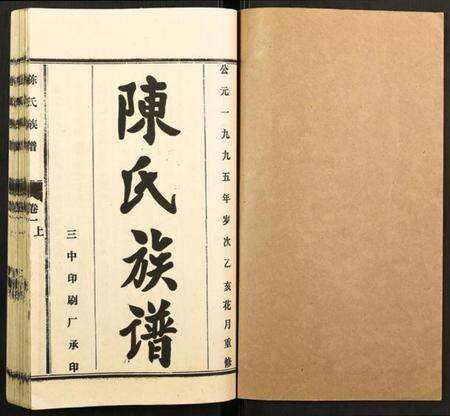 公元一九九五年岁次乙亥花月重修
陳氏族谱
三中印刷厂承印
陈氏族谱
卷一上